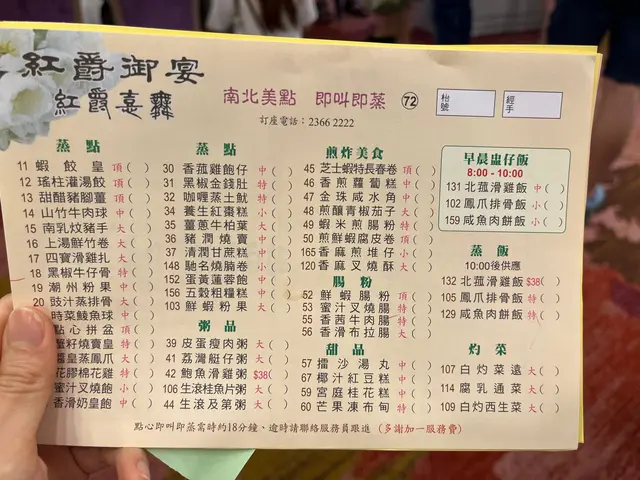 紅爵御宴
紅爵喜舞
南北美點 即叫即蒸 72
訂座電話：2366 2222
枱號
經手
蒸點
11 蝦餃皇 頂( )
12 瑤柱灌湯餃 頂( )
13 甜醋豬腳薑 頂( )
14 山竹牛肉球 中( )
15 南乳炆豬手 大( )
16 上湯鮮竹卷 大( )
17 四寶滑雞扎 大( )
18 黑椒牛仔骨 特( )
19 潮州粉果 中( )
20 豉汁蒸排骨 大( )
時菜鯪魚球 中( )
點心拼盆 頂( )
蟹籽燒賣皇 特( )
醬皇蒸鳳爪 大( )
花膠棉花雞 特( )
蜜汁叉燒飽 小( )
香滑奶皇飽 中( )
蒸點
30 香菰雞飽仔 中( )
31 黑椒金錢肚 特( )
32 咖喱蒸土魷 特( )
34 養生紅棗糕 小( )
35 薑蔥牛柏葉 大( )
36 豬潤燒賣 中( )
37 清潤甘蔗糕 中( )
148 馳名燒腩卷 小( )
152 蛋黃蓮蓉飽 中( )
156 五穀粗糧糕 中( )
103 鮮蝦粉果 大( )
粥品
39 皮蛋瘦肉粥 大( )
41 荔灣艇仔粥 大( )
42 鮑魚滑雞粥 $38( )
106 生滾桂魚片粥 大( )
44 生滾及第粥 大( )
煎炸美食
45 芝士蝦特長春卷 頂( )
46 香煎蘿蔔糕 中( )
47 金珠咸水角 中( )
48 煎釀青椒茄子 大( )
49 蝦米煎腸粉 特( )
50 煎鮮蝦腐皮卷 頂( )
165 香麻煎堆仔 小( )
120 香麻叉燒酥 大( )
腸粉
52 鮮蝦腸粉 頂( )
53 蜜汁叉燒腸 特( )
55 香茜牛肉腸 特( )
56 香滑布拉腸 大( )
甜品
57 擂沙湯丸 中( )
67 椰汁紅豆糕 中( )
59 宮庭桂花糕 中( )
60 芒果凍布甸 特( )
早晨盅仔飯
8:00 - 10:00
131 北菰滑雞飯 中( )
102 鳳爪排骨飯 小( )
159 咸魚肉餅飯 小( )
蒸飯
10:00後供應
132 北菰滑雞飯 $38( )
105 鳳爪排骨飯 特( )
129 咸魚肉餅飯 特( )
灼菜
107 白灼菜遠 大( )
114 腐乳通菜 大( )
109 白灼西生菜 大( )
點心即叫即蒸需時約18分鐘、逾時請聯絡服務員跟進 (多謝加一服務費)